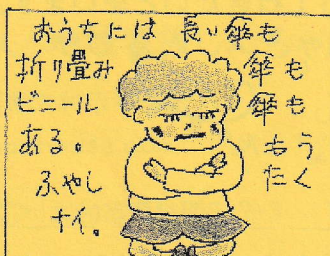 おうちには 長い傘も
折り畳み 傘も
ビニール 傘も
ある。 もう
ふやし たく
ナイ。